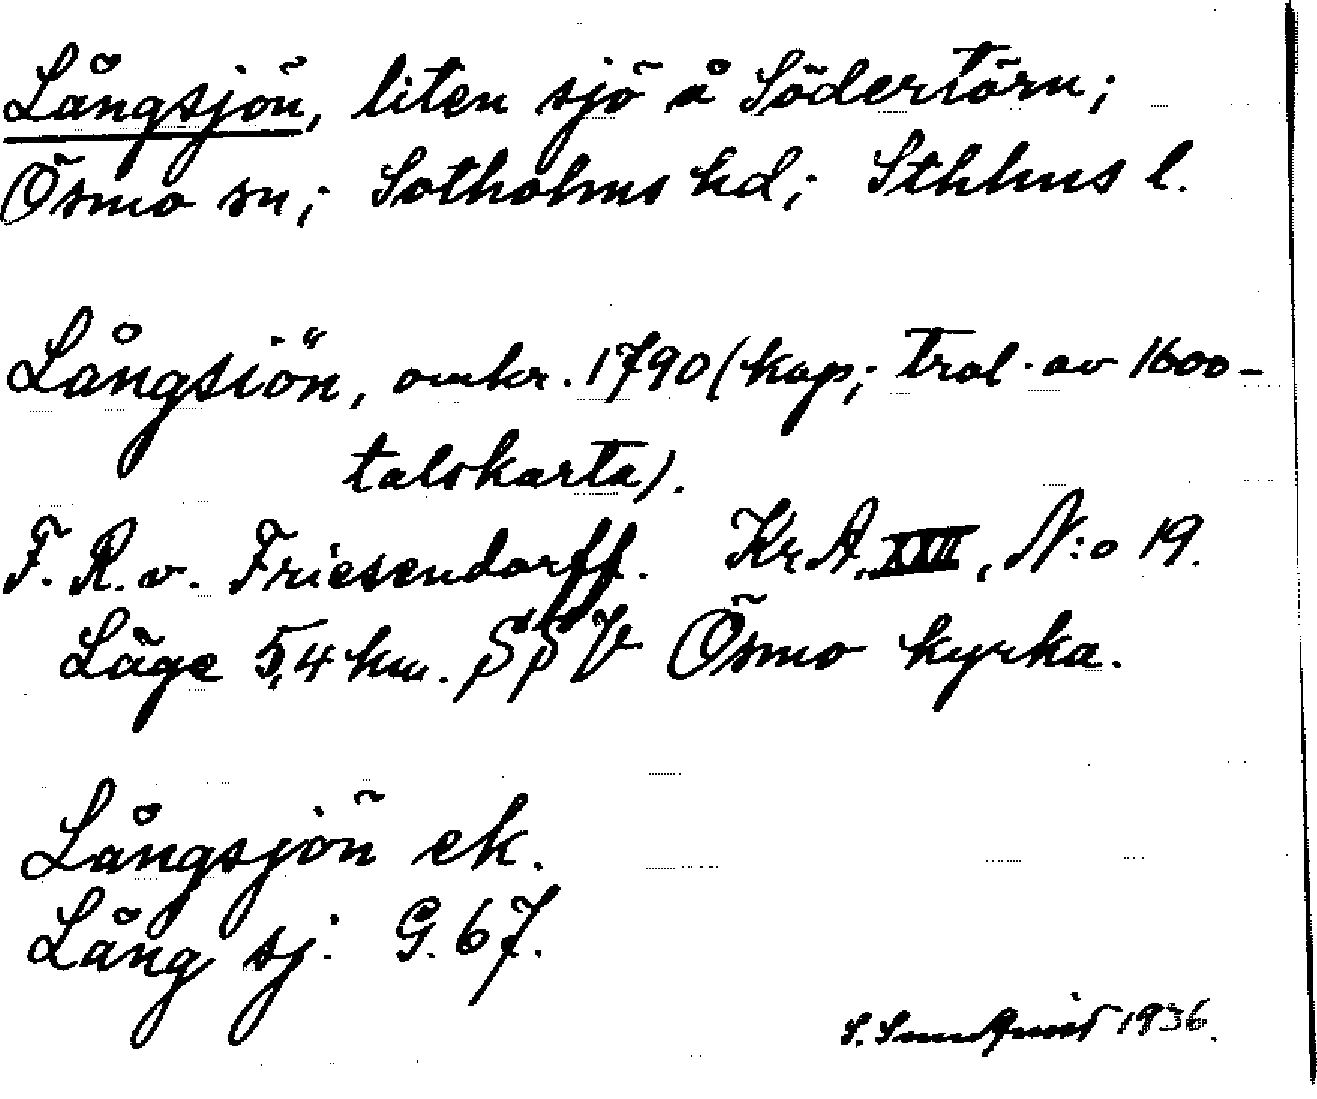 Långsjön, liten sjö å Södertörn;
Ösmo sn; Sotholms hd; Sthlms l.
Långsiön, omkr. 1790 (kop; trol. av 1600-
talskarta).
F. R. v. Friesendorff. KrA. XVII, N:o 19.
Läge 5,4 km. SSV Ösmo kyrka.
Långsjön ek.
Lång sj. G. 67.
S. Sundqvist 1936.